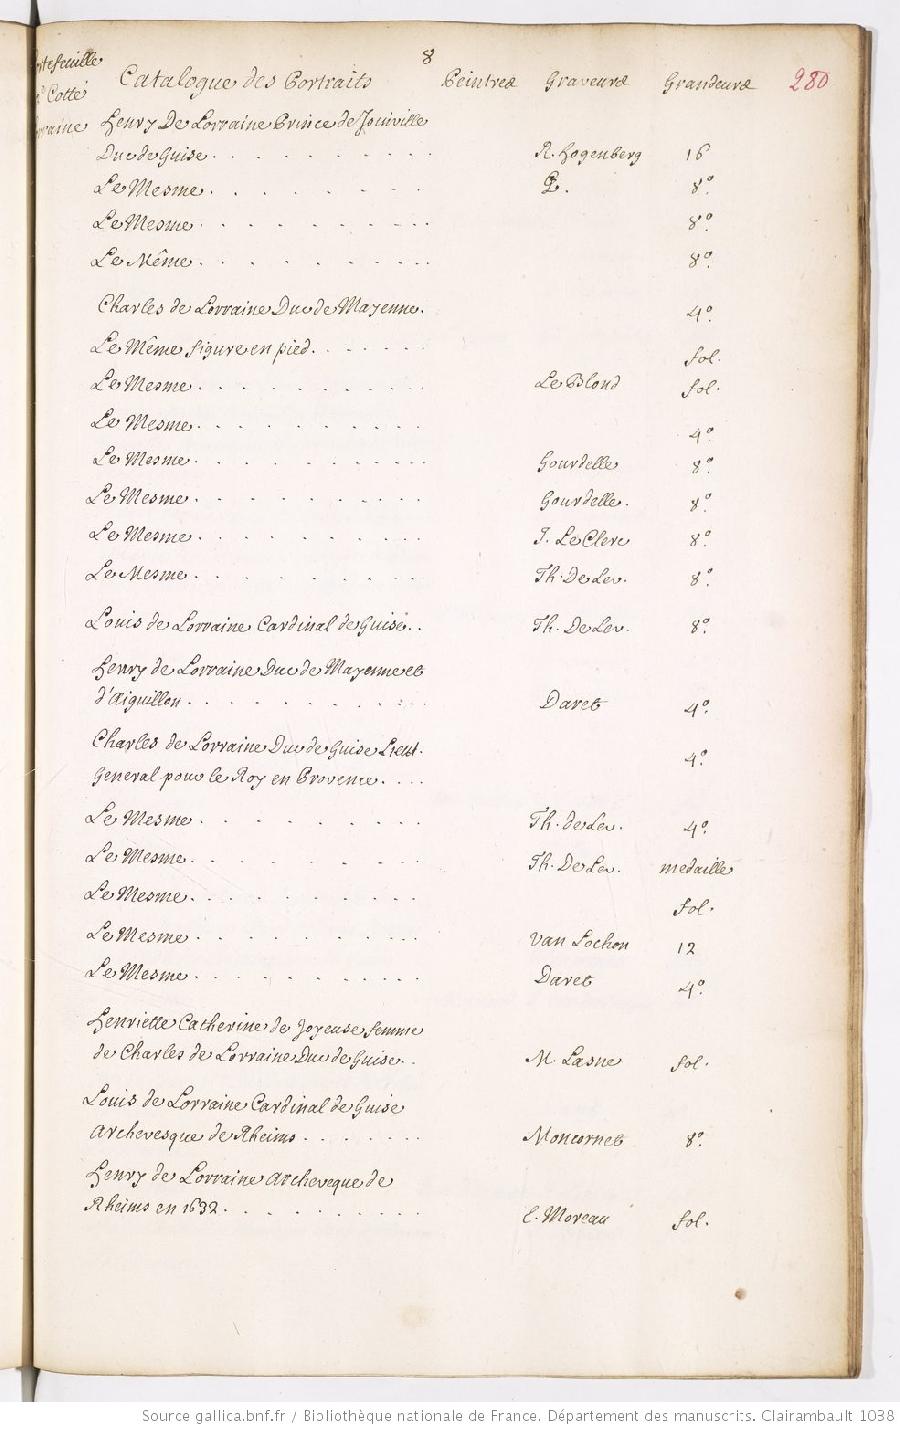 8
Catalogue des Portraits Peintres Graveurs Grandeurs 280
Cotté
Henry De Lorraine Prince de Joinville
Duc de Guise. R. Hogenberg 16
Le Mesme. 8º.
Le Mesme. 8º.
Le Même. 8º.
Charles de Lorraine Duc de Mayenne. 4º.
Le Même figure en pied. fol.
Le Mesme. Le Blond fol.
Le Mesme. 4º.
Le Mesme. Gourdelle 8º.
Le Mesme. Gourdelle. 8º.
Le Mesme. J. Le Clerc 8º.
Le Mesme. Th. De Leu. 8º.
Louis de Lorraine Cardinal de Guise.. Th. De Leu. 8º.
Henry de Lorraine Duc de Mayenne et
d'Aiguillon. Daret 4º.
Charles de Lorraine Duc de Guise Lieut.
General pour le Roy en Provence. 4º.
Le Mesme. Th. de Leu. 4º.
Le Mesme. Th. De Leu. medaille
Le Mesme. fol.
Le Mesme. Van Lochon 12
Le Mesme. Daret 4º.
Henriette Catherine de Joyeuse femme
de Charles de Lorraine Duc de Guise.. M. Lasne fol.
Louis de Lorraine Cardinal de Guise
Archevesque de Rheims. Moncornet 8º.
Henry de Lorraine Archeveque de
Rheims en 1632. E. Moreau fol.
Source gallica.bnf.fr / Bibliothèque nationale de France. Département des manuscrits. Clairambault 1038